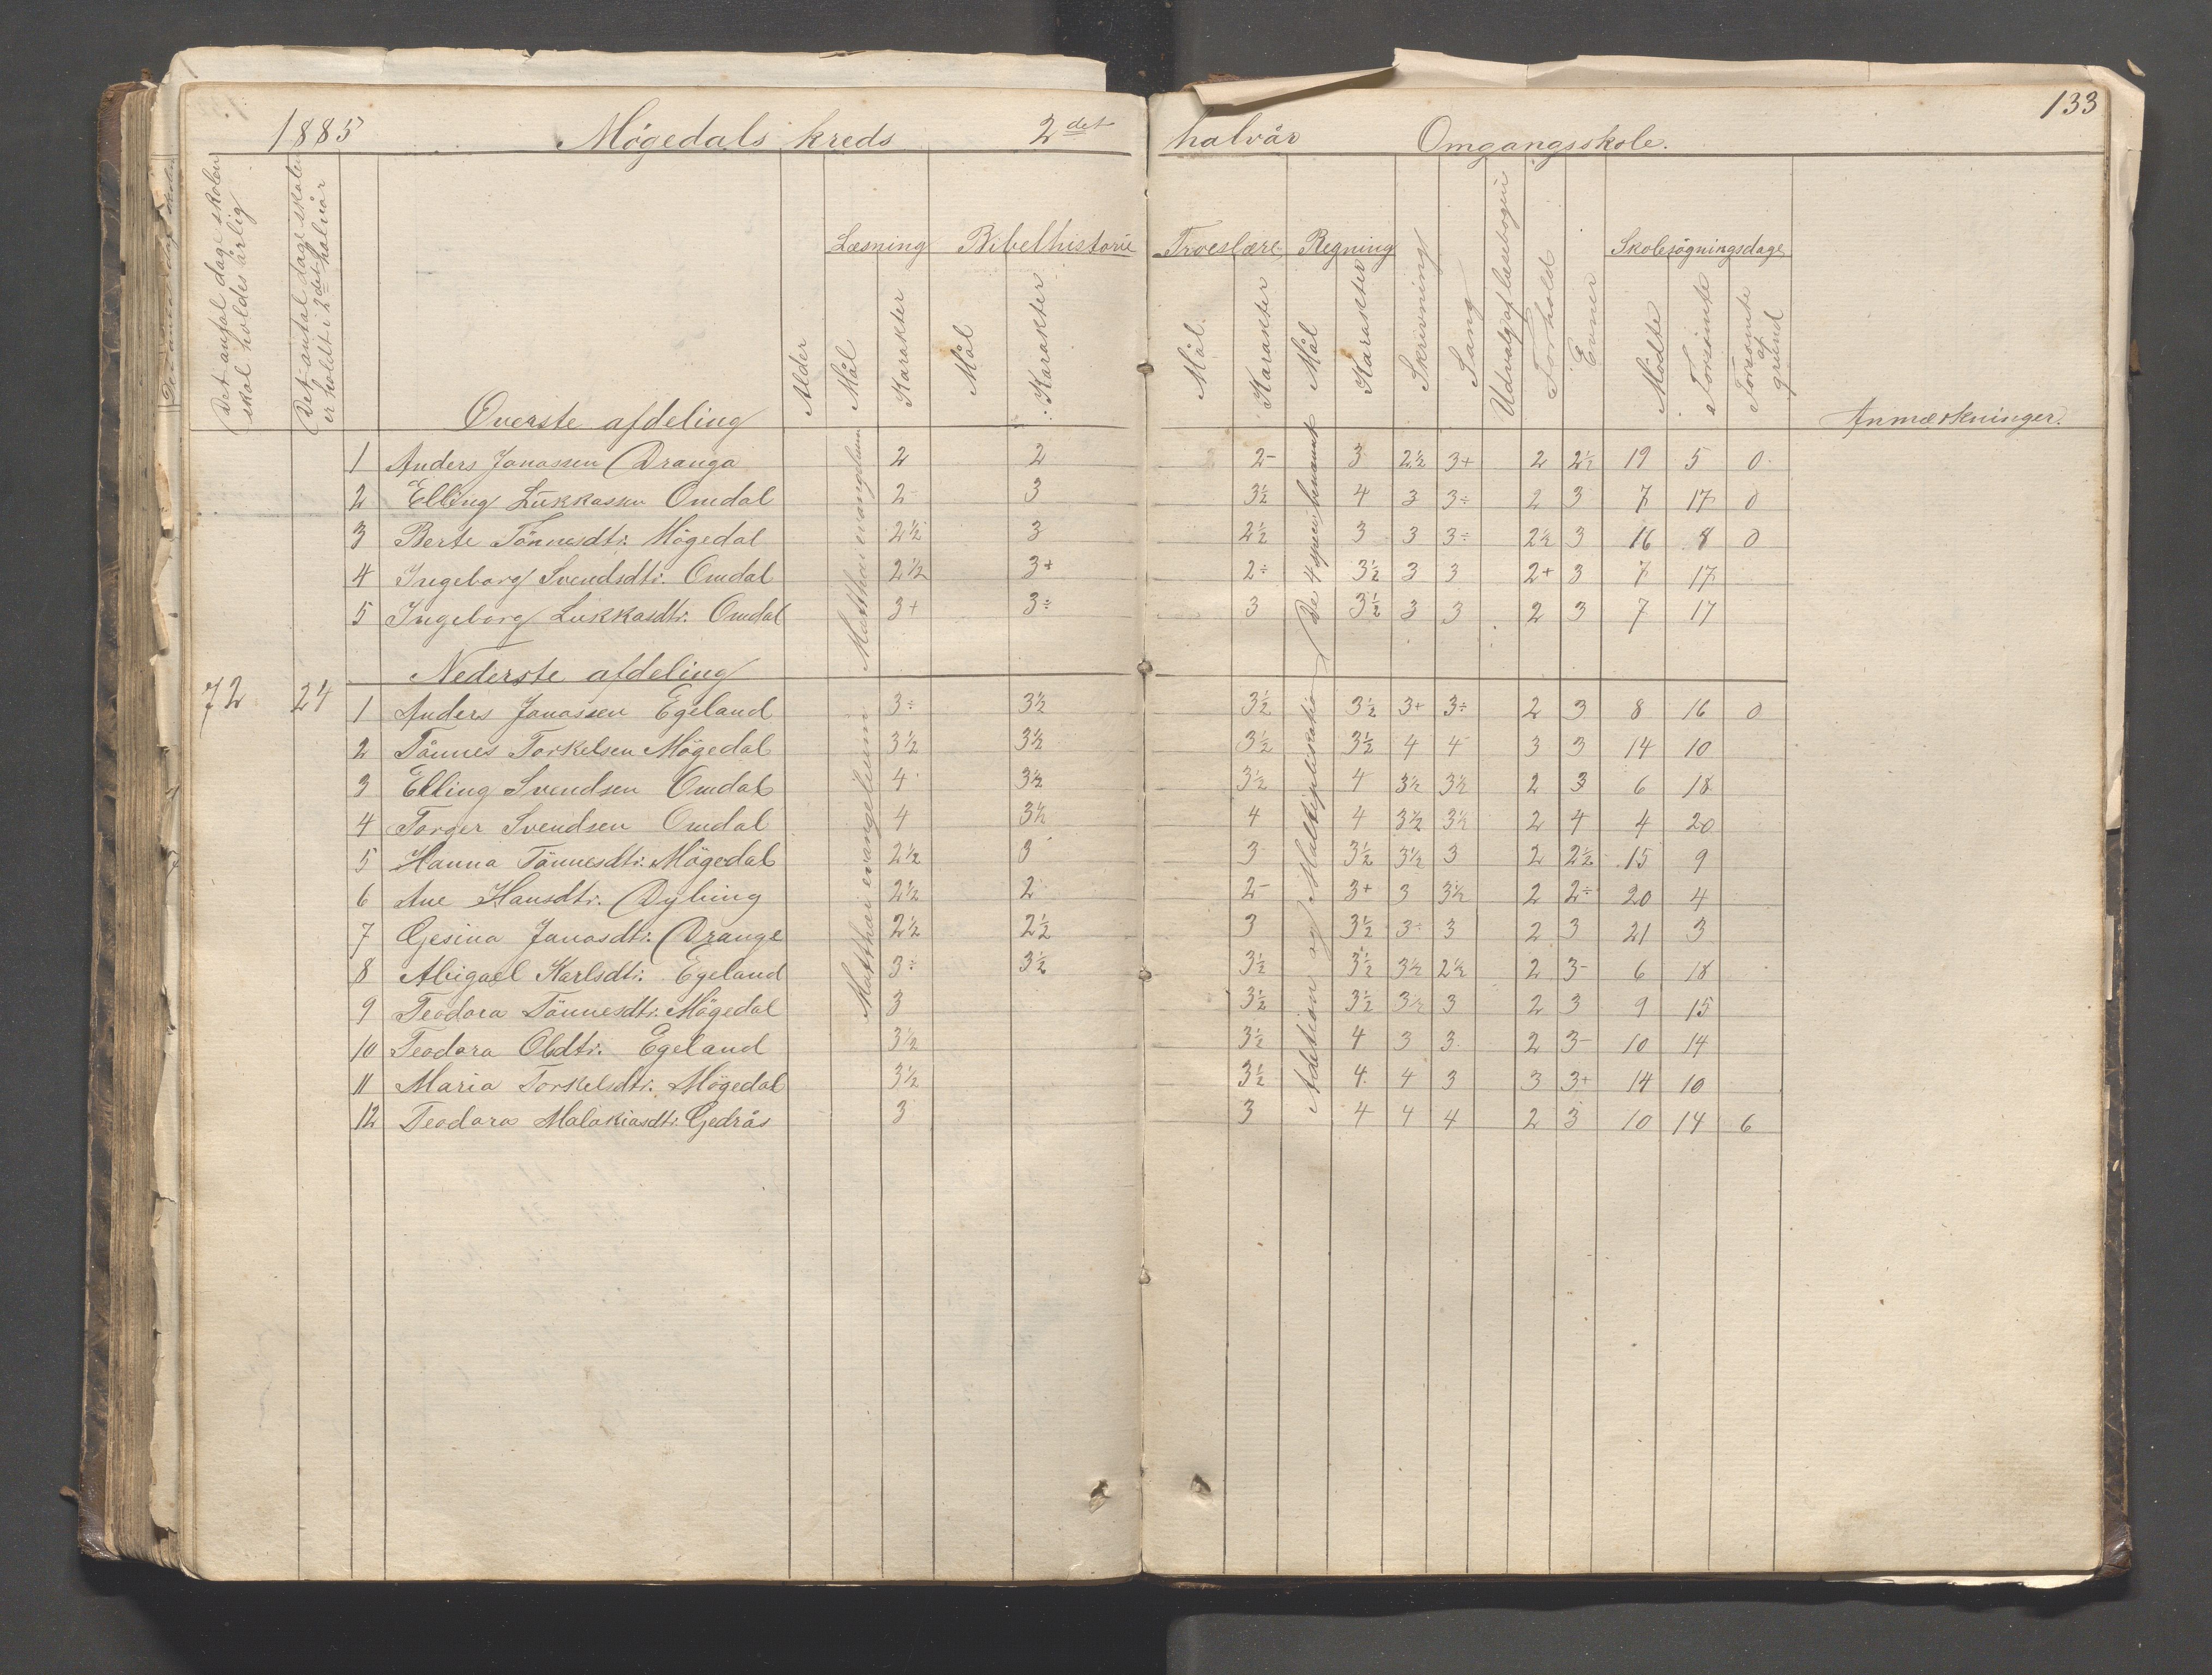 133
1885 Mögedals kreds 2det halvår Omgangsskole.
Det antal dage skolen skal holdes årlig
Det antal dage skolen er holdt i 2det halvår
Alder
Læsning Mål Karakter
Bibelhistorie Mål Karakter
Troeslære Mål Karakter
Regning Mål Karakter
Skrivning
Sang
Udvalg af læsebogen
Forhold
Evner
Skolesögningsdage Mödte Forsömte Forsömte af grund
Anmærkninger.
Overste afdeling
Matthæi evangelium
De 4 species
1 Anders Jonassen Dranga 2 2 2- 3 2½ 3+ 2 2½ 19 5 0
2 Elling Lukkassen Omdal 2 3 3½ 4 3 3÷ 2 3 7 17 0
3 Berte Tönnesdtr. Mögedal 2½ 3 2½ 3 3 3÷ 2½ 3 16 8 0
4 Ingeborg Svendsdtr. Omdal 2½ 3+ 2÷ 3½ 3 3 2+ 3 7 17
5 Ingeborg Lukkasdtr. Omdal 3+ 3÷ 3 3½ 3 3 2 3 7 17
Nederste afdeling
72 24
Matthæi evangelium
Addition og Multiplikation
1 Anders Jonassen Egeland 3÷ 3½ 3½ 3½ 3+ 3÷ 2 3 8 16 0
2 Tönnes Torkelsen Mögedal 3½ 3½ 3½ 3½ 4 4 3 3 14 10
3 Elling Svendsen Omdal 4 3½ 3½ 4 3½ 3½ 2 3 6 18
4 Torger Svendsen Omdal 4 3½ 4 4 3½ 3½ 2 4 4 20
5 Hanna Tönnesdtr. Mögedal 2½ 3 3 3½ 3½ 3 2 2½ 15 9
6 Ane Hansdtr. Dybing 2½ 2 2- 3+ 3 3½ 2 2÷ 20 4
7 Gesina Jonasdtr. Drange 2½ 2½ 3 3½ 3÷ 3 2 3 21 3
8 Abigael Karlsdtr. Egeland 3÷ 3½ 3½ 3½ 3½ 2½ 2 3- 6 18
9 Teodora Tönnesdtr. Mögedal 3 3½ 3½ 3½ 3 2 3 9 15
10 Teodora Olsdtr. Egeland 3½ 3½ 4 3 3 2 3- 10 14
11 Maria Torkelsdtr. Mögedal 3½ 3½ 4 4 3 3 3+ 14 10
12 Teodora Malakiasdtr. Gedrås 3 3 4 4 4 2 3 10 14 6